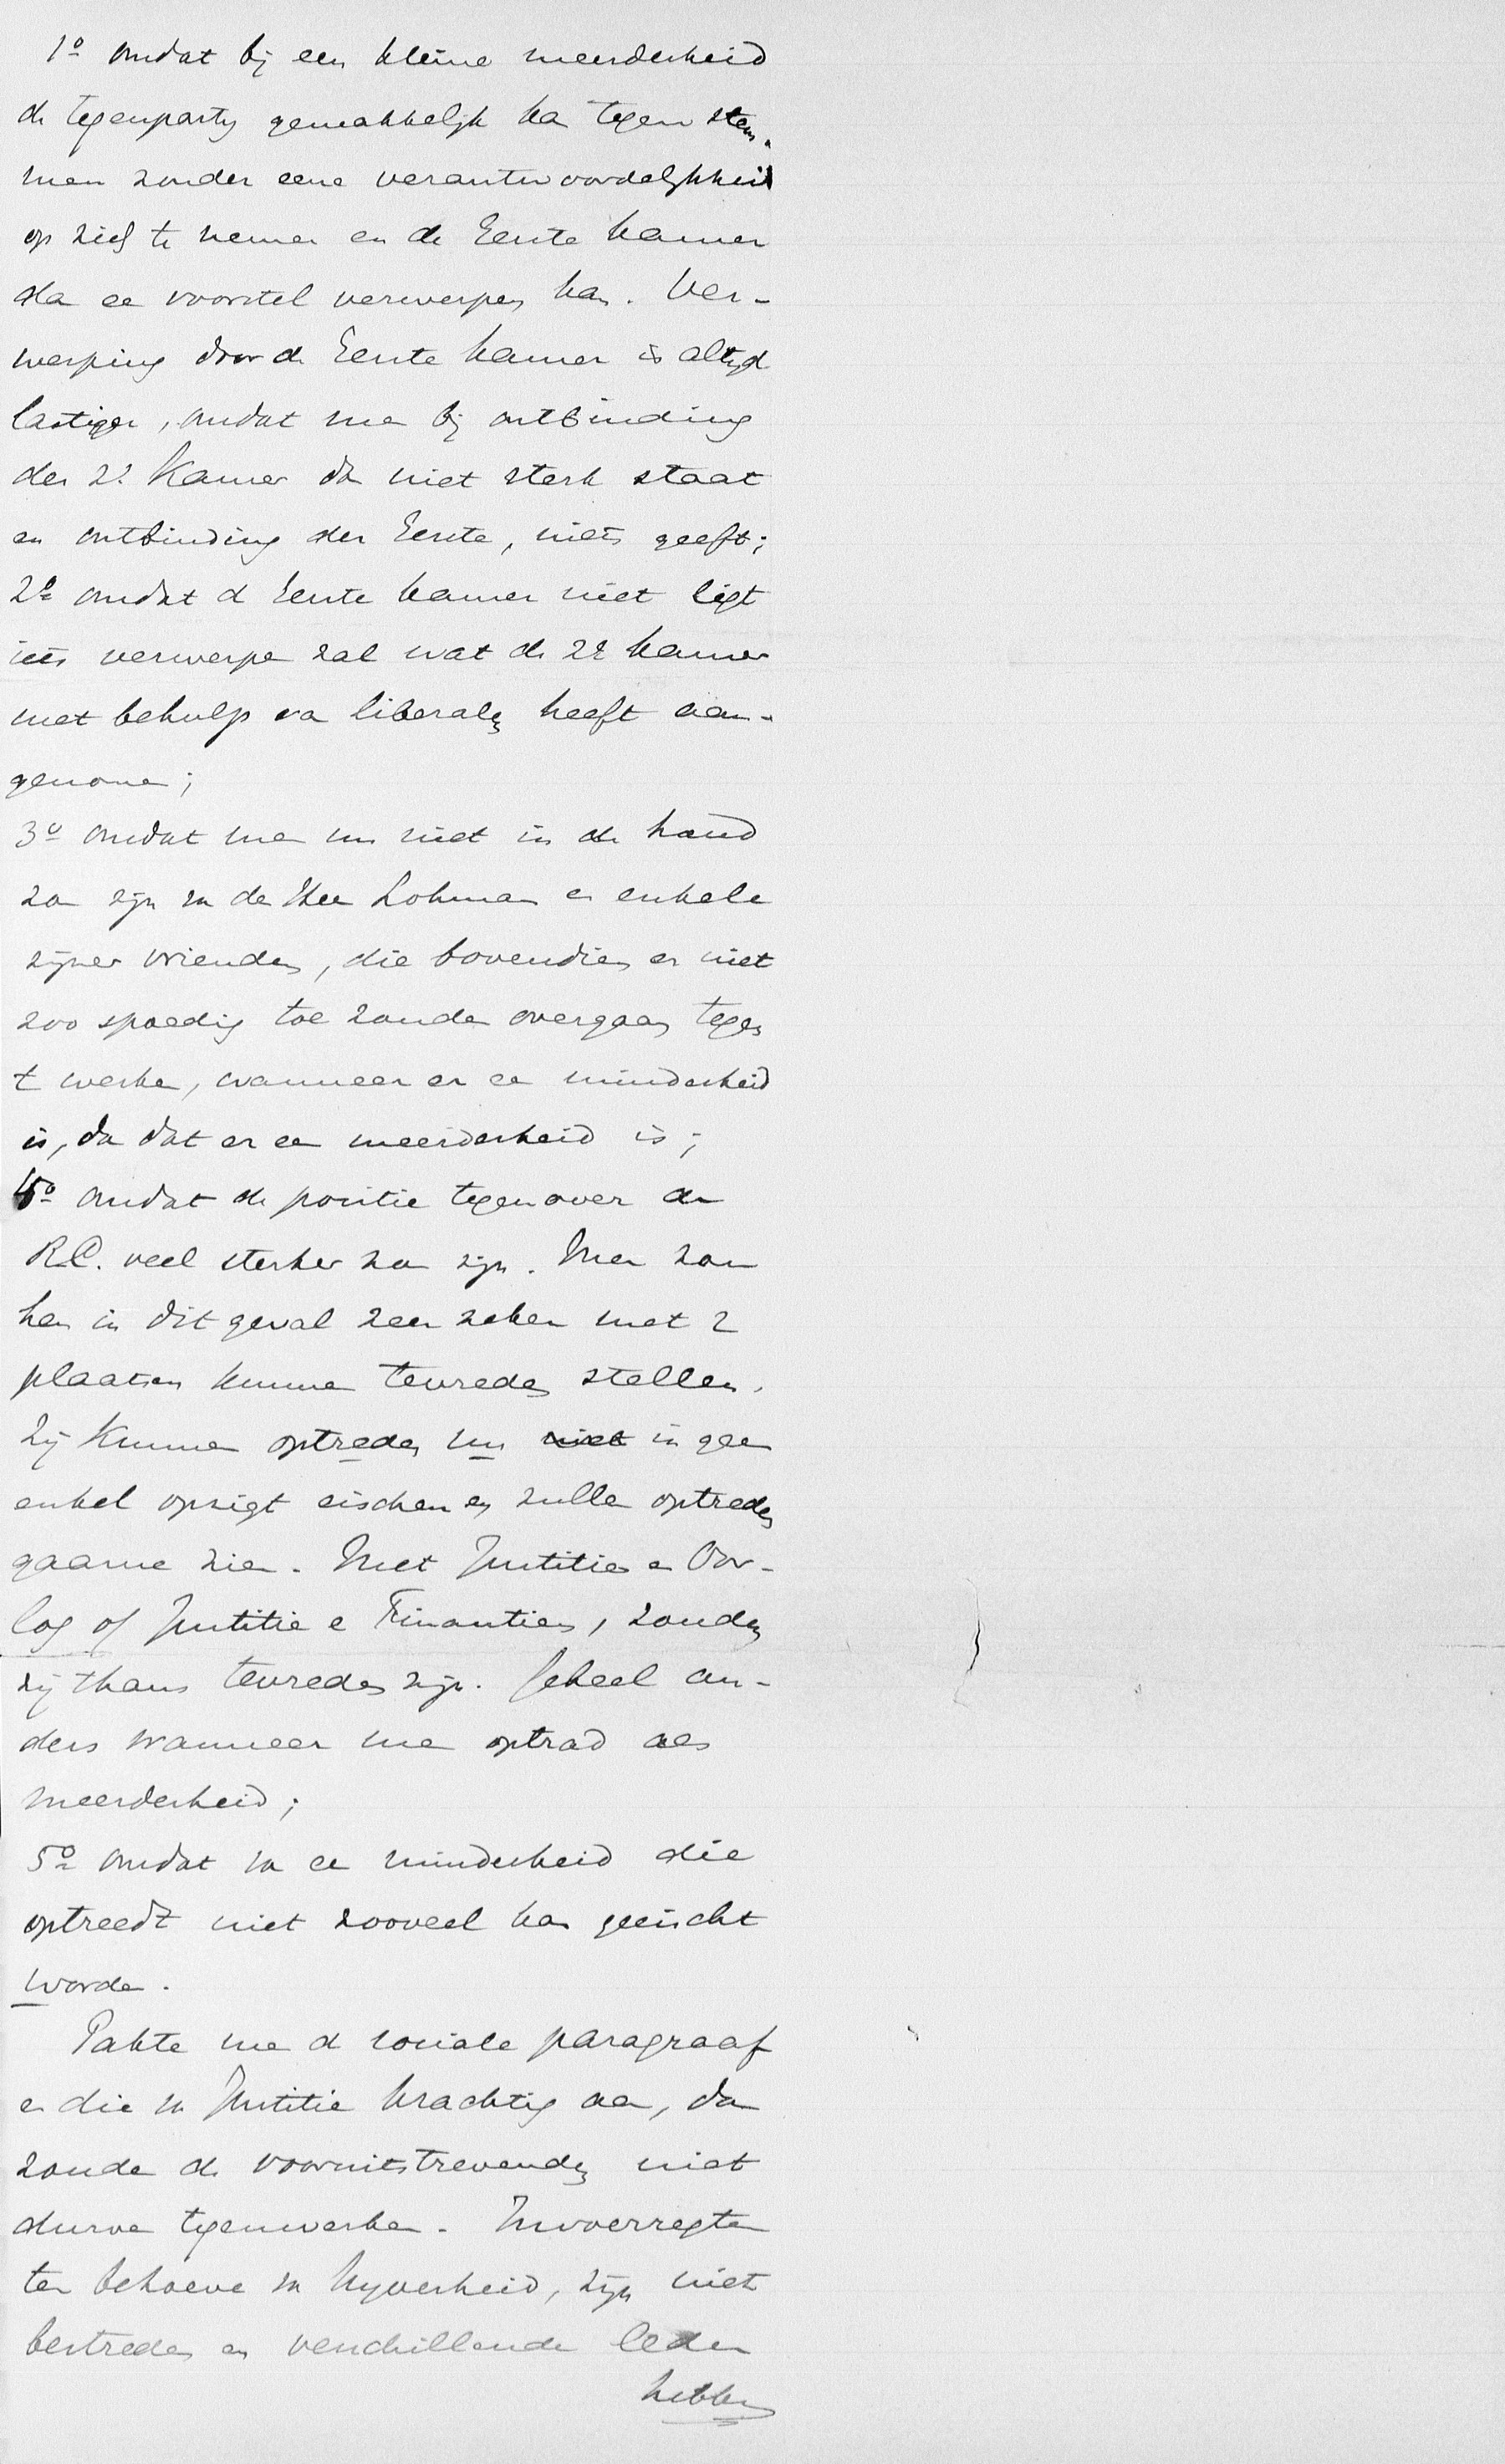 1o omdat bij een kleine meerderheid
de tegenpartij gemakkelijk kan tegen stem-
men zonder eene verantwoordelijkheid
op zich te nemen en de Eerste Kamer
dan een voorstel verwerpen kan. Ver-
werping door de Eerste Kamer is altijd
lastiger, omdat men bij ontbinding
der 2e Kamer dan niet sterk staat
en ontbinding der Eerste, niets geeft;
2o omdat de Eerste Kamer niet ligt
iets verwerpen zal wat de 2e Kamer
met behulp van liberalen heeft aan-
genomen;
3o omdat men nu niet in de hand
zou zijn van den Heer Lohman en enkele
zijner vrienden, die bovendien er niet
zoo spoedig toe zouden overgaan tegen
te werken, wanneer er een minderheid
is, dan dat er een meerderheid is;
4o omdat de positie tegenover de
R.C. veel sterker zou zijn. Men zou
hen in dit geval zeer zeker met 2
plaatsen kunnen tevreden stellen.
Zij kunnen optreden nu niet in geen
enkel opzigt eischen en zullen optreden
gaarne zien. Met Justitie en Oor-
log of Justitie en Financiën, zouden
zij thans tevreden zijn. Geheel an-
ders wanneer men optrad als
meerderheid;
5o omdat van een minderheid die
optreedt niet zooveel kan geëischt
worden.
Pakte men de sociale paragraaf
en die van Justitie krachtig aan, dan
zouden de vooruitstrevenden niet
durven tegenwerken. Invoerregten
ten behoeve van Nijverheid, zijn niet
bestreden en verschillende leden
hebben